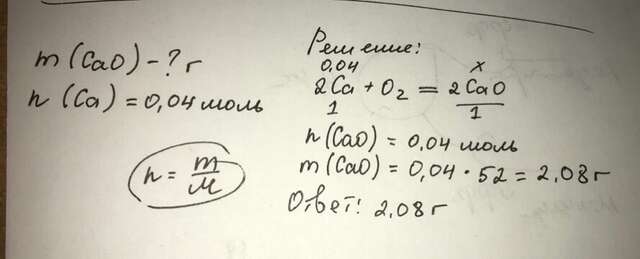 m (CaO) - ? г
n (Ca) = 0,04 моль
n = m/M
Решение:
0,04 x
2Ca + O₂ = 2CaO
1 1
n(CaO) = 0,04 моль
m(CaO) = 0,04 · 52 = 2,08 г
Ответ: 2,08 г